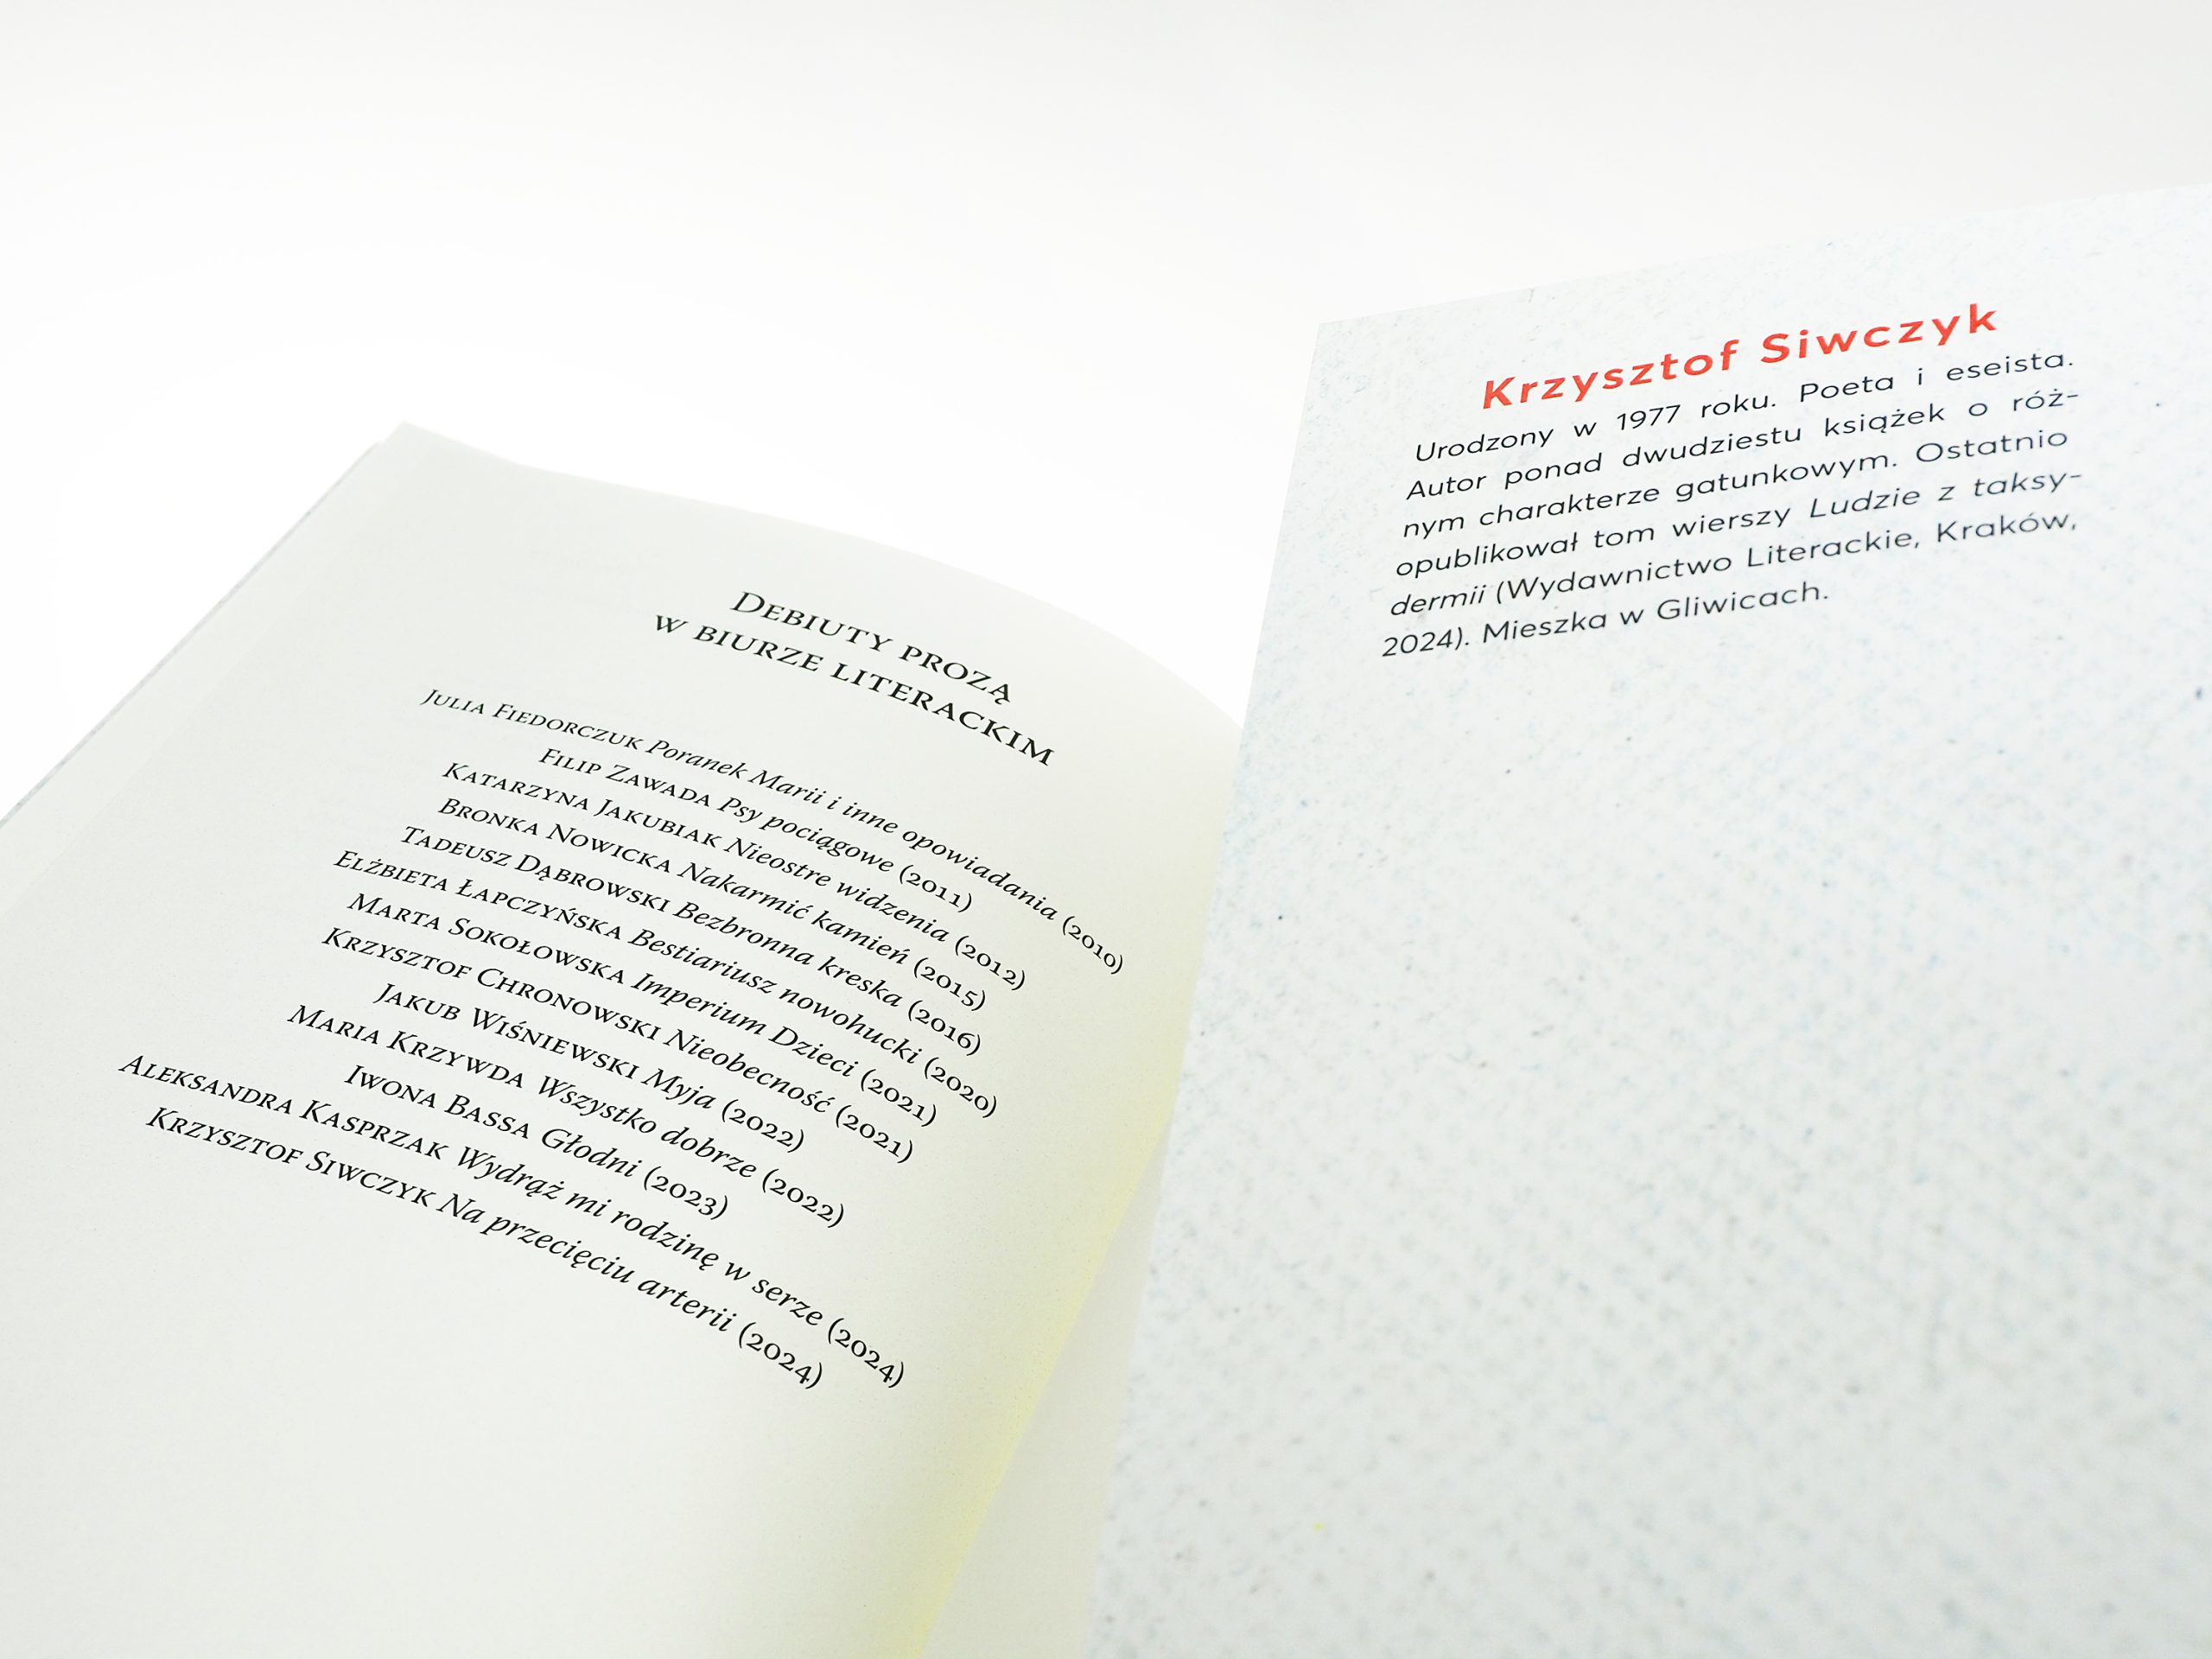 Debiuty prozą
w Biurze Literackim
Julia Fiedorczuk Poranek Marii i inne opowiadania (2010)
Filip Zawada Psy pociągowe (2011)
Katarzyna Jakubiak Nieostre widzenia (2012)
Bronka Nowicka Nakarmić kamień (2015)
Tadeusz Dąbrowski Bezbronna kreska (2016)
Elżbieta Łapczyńska Bestiariusz nowohucki (2020)
Marta Sokołowska Imperium Dzieci (2021)
Krzysztof Chronowski Nieobecność (2021)
Jakub Wiśniewski Myja (2022)
Maria Krzywda Wszystko dobrze (2022)
Iwona Bassa Głodni (2023)
Aleksandra Kasprzak Wydrąż mi rodzinę w serze (2024)
Krzysztof Siwczyk Na przecięciu arterii (2024)
Krzysztof Siwczyk
Urodzony w 1977 roku. Poeta i eseista.
Autor ponad dwudziestu książek o róż-
nym charakterze gatunkowym. Ostatnio
opublikował tom wierszy Ludzie z taksy-
dermii (Wydawnictwo Literackie, Kraków,
2024). Mieszka w Gliwicach.